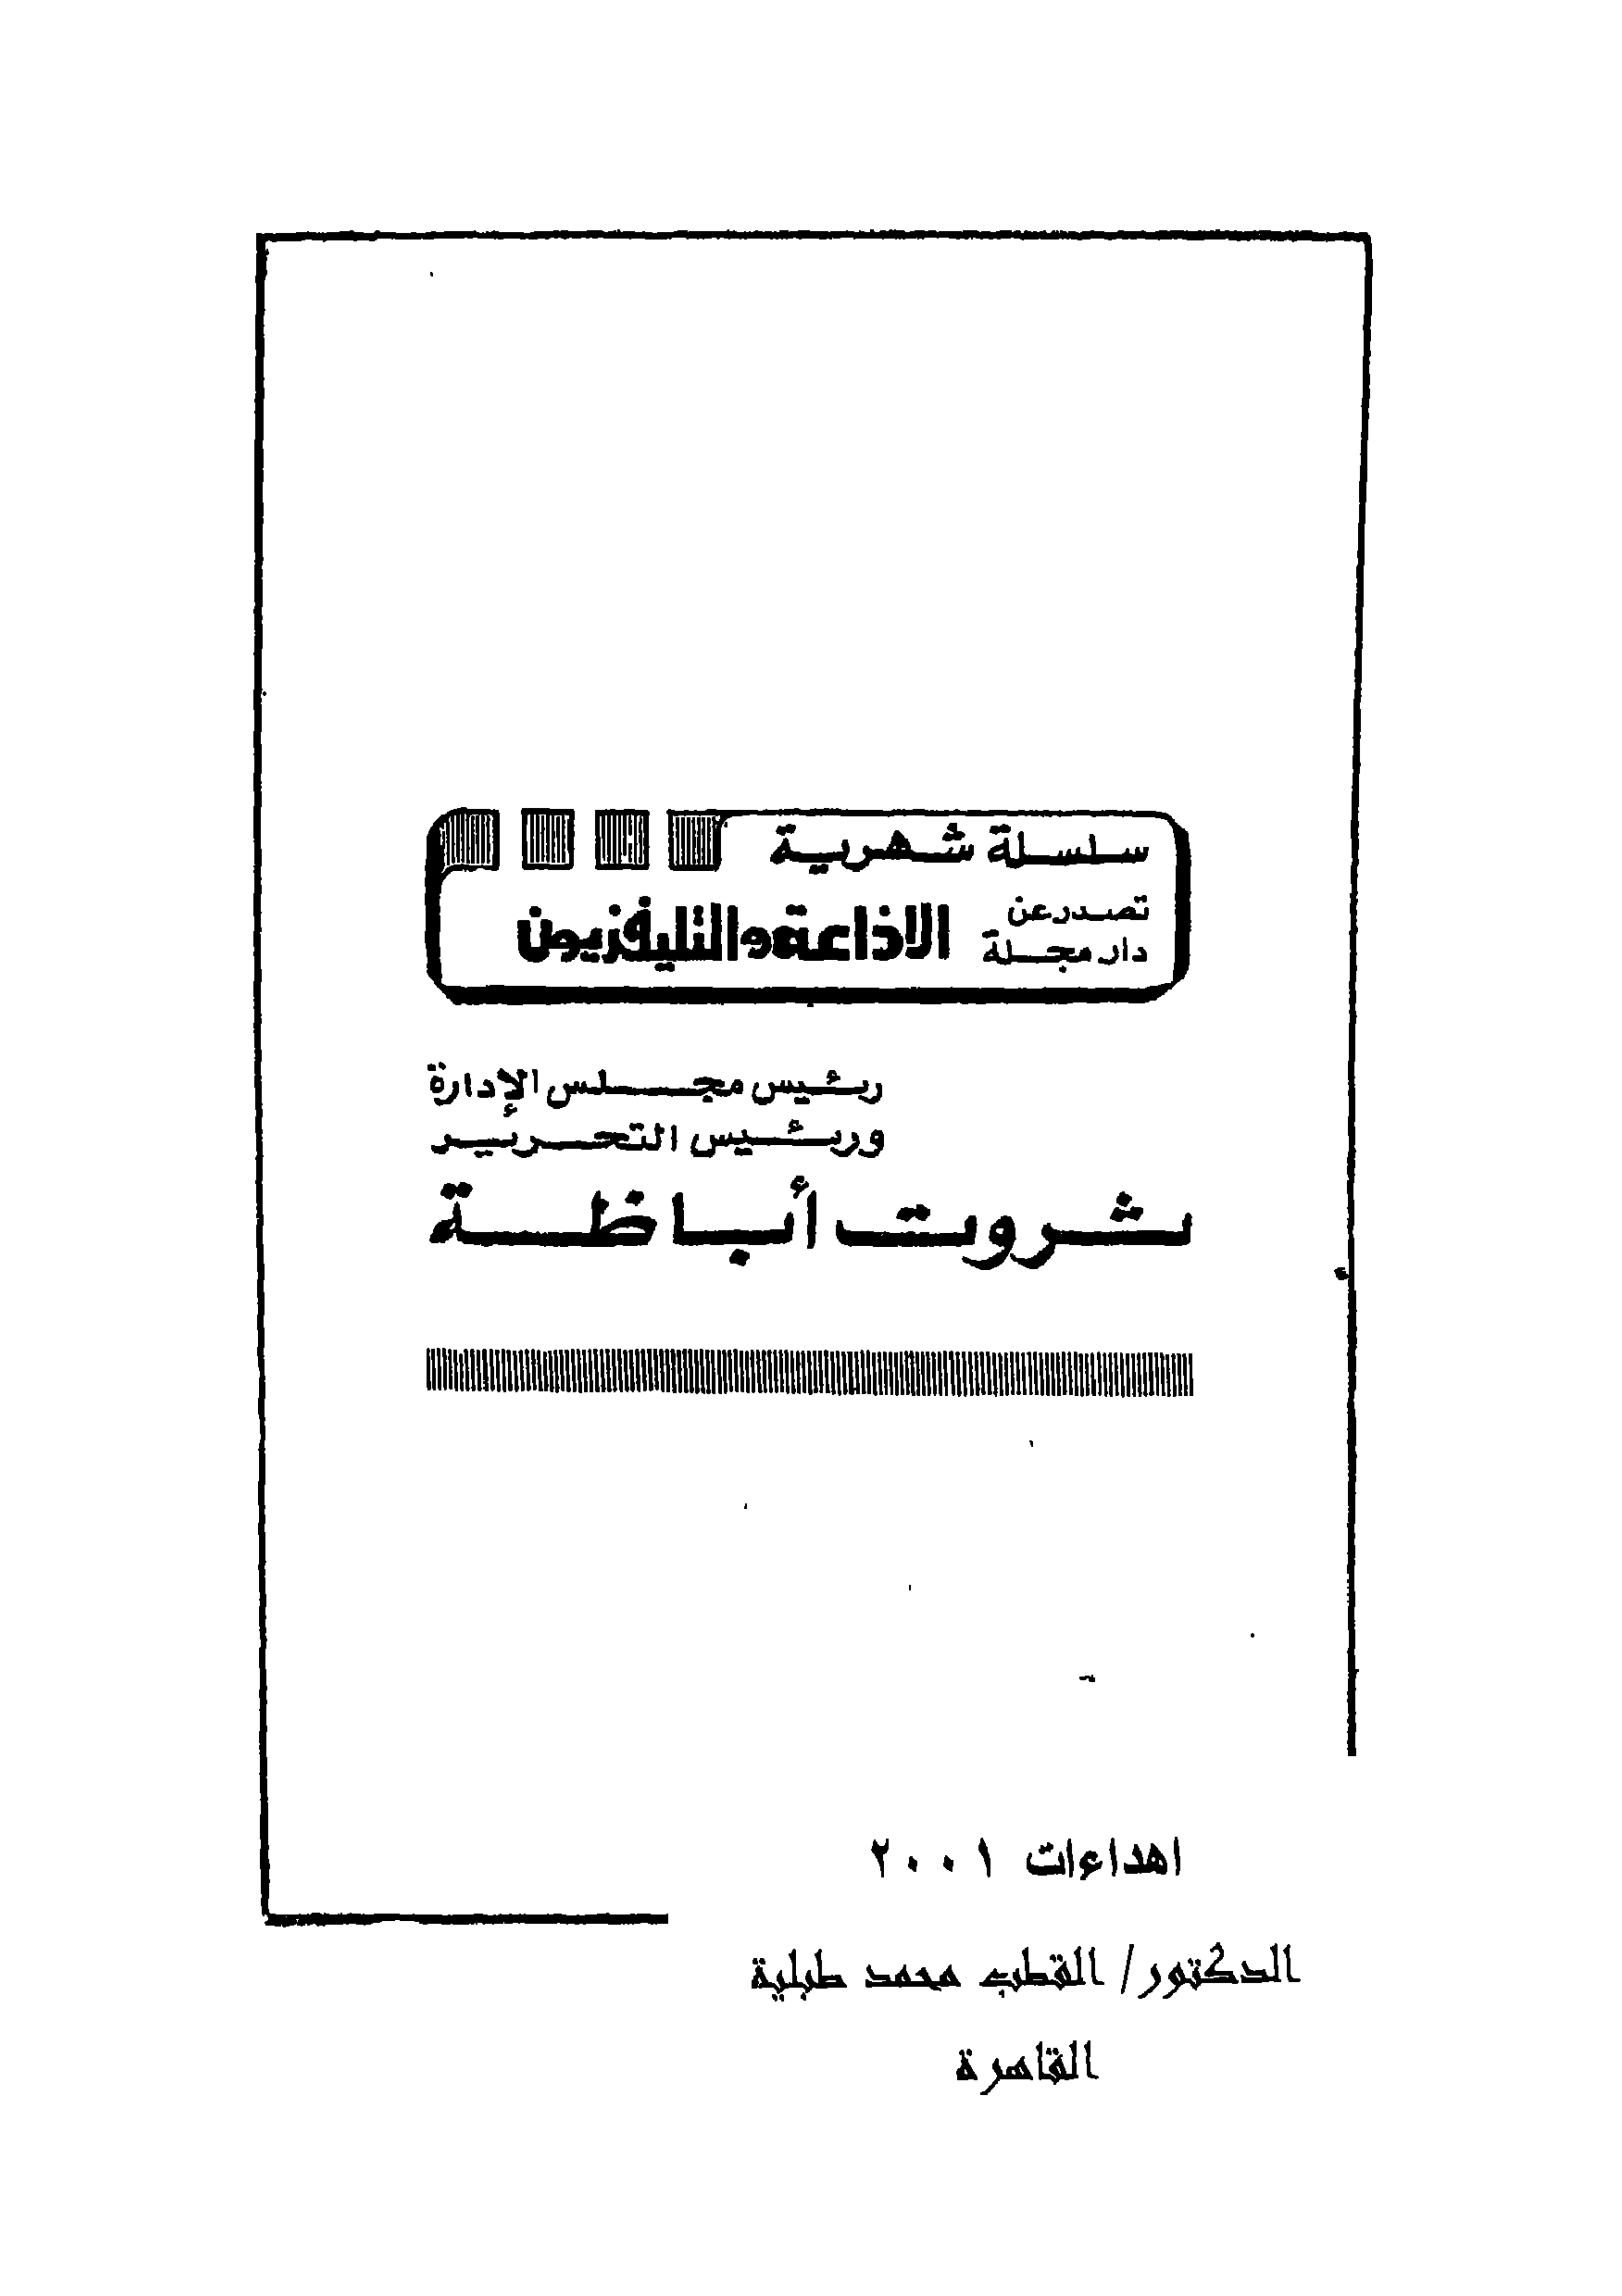 سلسلة شهرية
تصدر عن
دار مجلة
الاذاعة والتليفزيون
رئيس مجلس الإدارة
ورئيس التحرير
ثروت أباظة
اهداءات ٢٠٠١
الدكتور/ القطب محمد طبلية
القاهرة